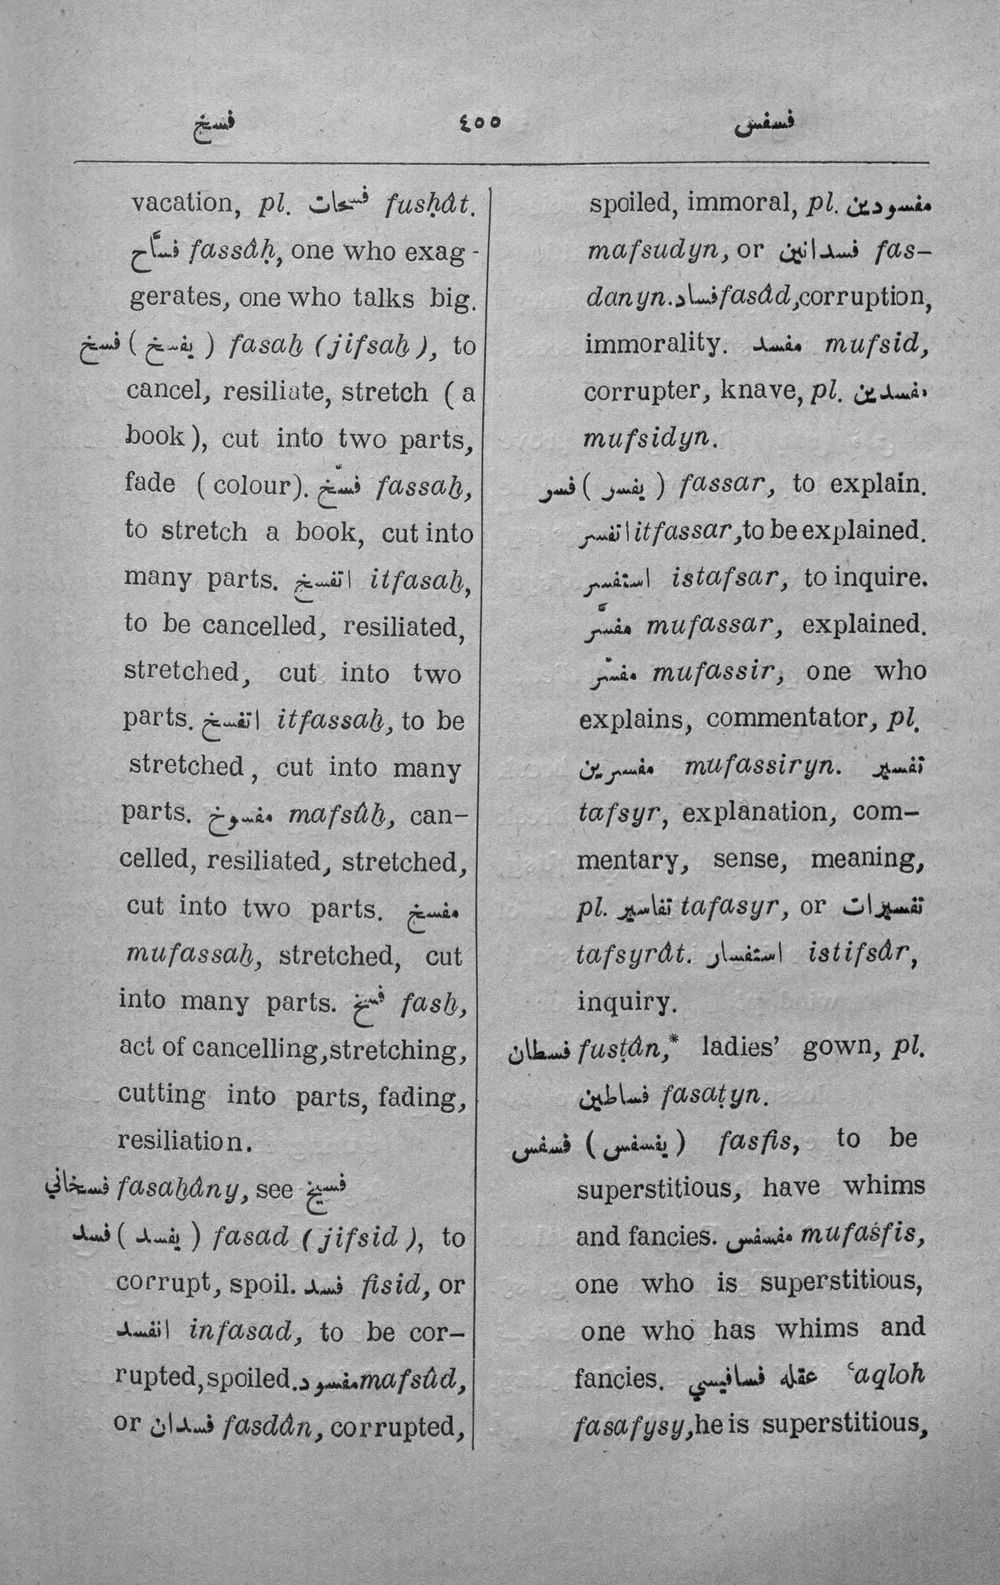 فسخ ٤٥٥ فسفس
vacation, pl. فسحات fusḥât.
فسّاح fassâḥ, one who exag-
gerates, one who talks big.
فسخ ( يفسخ ) fasaẖ (jifsaẖ), to
cancel, resiliate, stretch (a
book), cut into two parts,
fade (colour). فسّخ fassaẖ,
to stretch a book, cut into
many parts. اتفسخ itfasaẖ,
to be cancelled, resiliated,
stretched, cut into two
parts. اتفسخ itfassaẖ, to be
stretched, cut into many
parts. مفسوخ mafsûẖ, can-
celled, resiliated, stretched,
cut into two parts. مفسخ
mufassaẖ, stretched, cut
into many parts. فسخ fasẖ,
act of cancelling, stretching,
cutting into parts, fading,
resiliation.
فسخاني fasaẖâny, see فسيخ
فسد ( يفسد ) fasad (jifsid), to
corrupt, spoil. فسد fisid, or
انفسد infasad, to be cor-
rupted, spoiled. مفسود mafsûd,
or فسدان fasdân, corrupted,
spoiled, immoral, pl. مفسودين
mafsudyn, or فسدانين fas-
danyn. فساد fasâd, corruption,
immorality. مفسد mufsid,
corrupter, knave, pl. مفسدين
mufsidyn.
فسر ( يفسر ) fassar, to explain.
اتفسر itfassar, to be explained.
استفسر istafsar, to inquire.
مفسَّر mufassar, explained.
مفسّر mufassir, one who
explains, commentator, pl.
مفسرين mufassiryn. تفسير
tafsyr, explanation, com-
mentary, sense, meaning,
pl. تفاسير tafasyr, or تفسيرات
tafsyrât. استفسار istifsâr,
inquiry.
فسطان fusṭân,* ladies' gown, pl.
فساطين fasaṭyn.
فسفس ( يفسفس ) fasfis, to be
superstitious, have whims
and fancies. مفسفس mufasfis,
one who is superstitious,
one who has whims and
fancies. عقله فسافيسي ʿaqloh
fasafysy, he is superstitious,